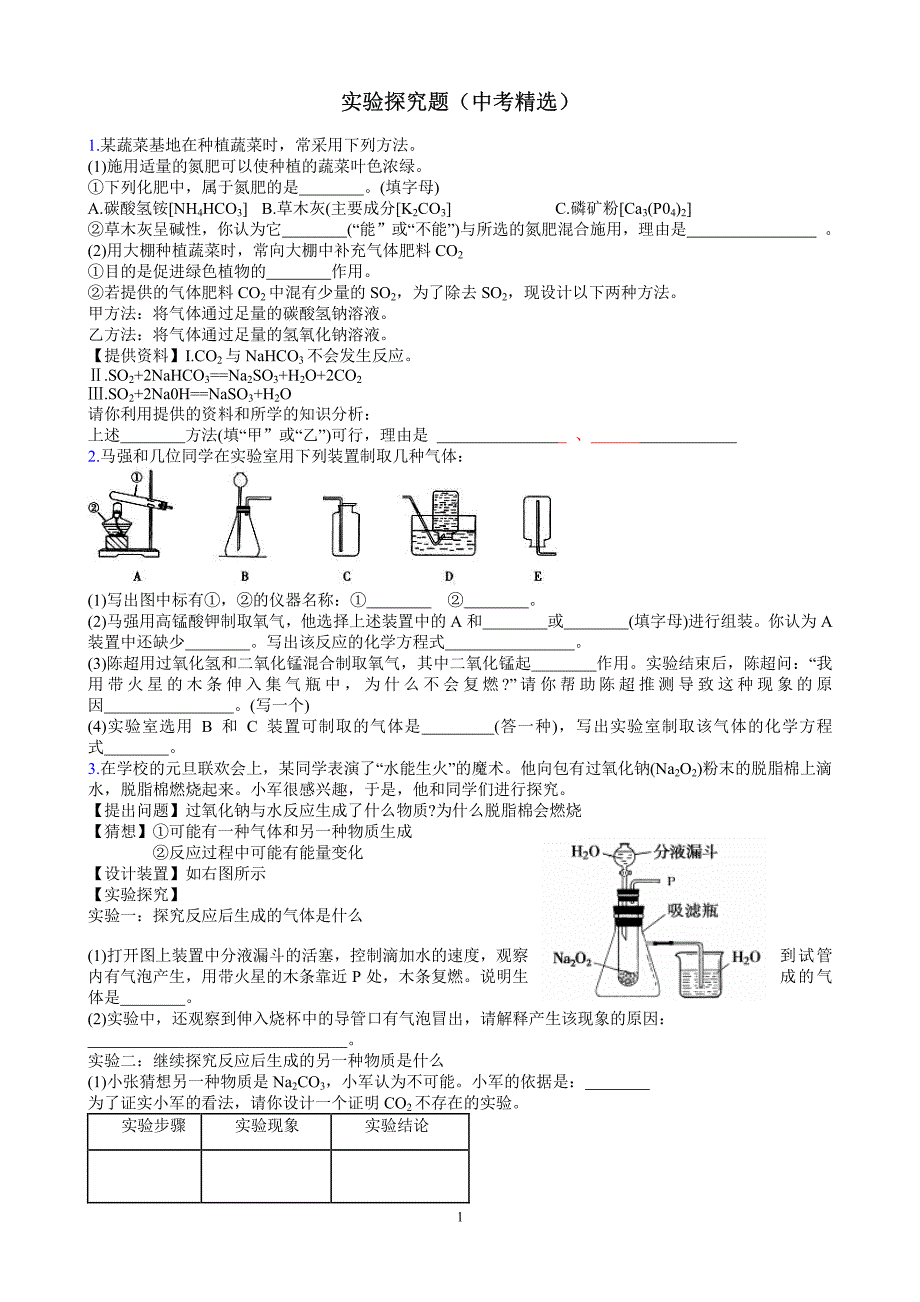 实验探究题（中考精选）
1.某蔬菜基地在种植蔬菜时，常采用下列方法。
(1)施用适量的氮肥可以使种植的蔬菜叶色浓绿。
①下列化肥中，属于氮肥的是________。(填字母)
A.碳酸氢铵[NH4HCO3] B.草木灰(主要成分[K2CO3] C.磷矿粉[Ca3(P04)2]
②草木灰呈碱性，你认为它________(“能”或“不能”)与所选的氮肥混合施用，理由是________________ 。
(2)用大棚种植蔬菜时，常向大棚中补充气体肥料 CO2
①目的是促进绿色植物的________作用。
②若提供的气体肥料 CO2 中混有少量的 SO2，为了除去 SO2，现设计以下两种方法。
甲方法：将气体通过足量的碳酸氢钠溶液。
乙方法：将气体通过足量的氢氧化钠溶液。
【提供资料】I.CO2 与 NaHCO3 不会发生反应。
Ⅱ.SO2+2NaHCO3==Na2SO3+H2O+2CO2
Ⅲ.SO2+2Na0H==NaSO3+H2O
请你利用提供的资料和所学的知识分析：
上述________方法(填“甲”或“乙”)可行，理由是 ________________ 、__________________
2.马强和几位同学在实验室用下列装置制取几种气体：
① ②
A B C D E
(1)写出图中标有①，②的仪器名称：①________ ②________。
(2)马强用高锰酸钾制取氧气，他选择上述装置中的 A 和________或________(填字母)进行组装。你认为 A
装置中还缺少________。写出该反应的化学方程式________________。
(3)陈超用过氧化氢和二氧化锰混合制取氧气，其中二氧化锰起________作用。实验结束后，陈超问：“我
用带火星的木条伸入集气瓶中，为什么不会复燃?”请你帮助陈超推测导致这种现象的原
因________________。(写一个)
(4)实验室选用 B 和 C 装置可制取的气体是________(答一种)，写出实验室制取该气体的化学方程
式________。
3.在学校的元旦联欢会上，某同学表演了“水能生火”的魔术。他向包有过氧化钠(Na2O2)粉末的脱脂棉上滴
水，脱脂棉燃烧起来。小军很感兴趣，于是，他和同学们进行探究。
【提出问题】过氧化钠与水反应生成了什么物质?为什么脱脂棉会燃烧
【猜想】①可能有一种气体和另一种物质生成
②反应过程中可能有能量变化
【设计装置】如右图所示
【实验探究】
实验一：探究反应后生成的气体是什么
H2O 分液漏斗
P
吸滤瓶
Na2O2 H2O
(1)打开图上装置中分液漏斗的活塞，控制滴加水的速度，观察到试管
内有气泡产生，用带火星的木条靠近 P 处，木条复燃。说明生成的气
体是________。
(2)实验中，还观察到伸入烧杯中的导管口有气泡冒出，请解释产生该现象的原因：
________________________________。
实验二：继续探究反应后生成的另一种物质是什么
(1)小张猜想另一种物质是 Na2CO3，小军认为不可能。小军的依据是：________
为了证实小军的看法，请你设计一个证明 CO2 不存在的实验。
实验步骤 实验现象 实验结论
1